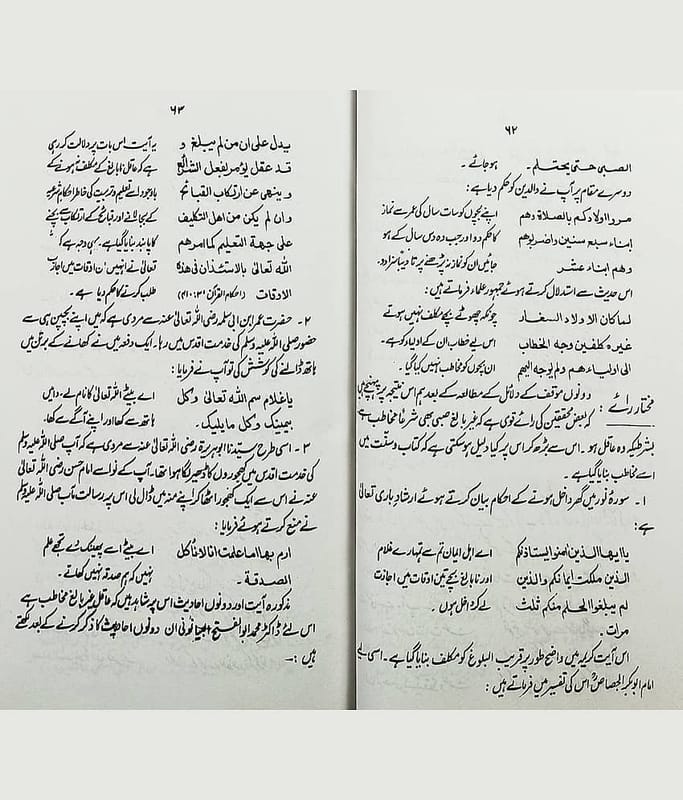 ٦٢
الصبی حتی یحتلم ۔ ہوجائے ۔
دوسرے مقام پر آپ نے والدین کو حکم دیا ہے :
مروا اولادکم بالصلاة وھم اپنے بچوں کو سات سال کی عمر سے نماز
ابناء سبع سنین واضربوھم کا حکم دو اور جب وہ دس سال کے ہو
وھم ابناء عشر جائیں ان کو نماز نہ پڑھنے پر تادیباً سزا دو۔
اس حدیث سے استدلال کرتے ہوئے جمہور علماء فرماتے ہیں :
لما کان الاولاد الصغار چونکہ چھوٹے بچے مکلف نہیں ہوتے
غیر مکلفین وجہ الخطاب اس لیے خطاب ان کے اولیاء کو ہے۔
الی اولیاءھم ولم یوجہ الیھم ان بچوں کو مخاطب نہیں کیا گیا۔
مختار رائے : دونوں موقف کے دلائل کے مطالعہ کے بعد ہم اس نتیجہ پر پہنچتے ہیں
کہ بعض محققین کی رائے قوی ہے کہ غیر بالغ صبی بھی شرعاً مخاطب ہے
بشرطیکہ وہ عاقل ہو ۔ اس سے بڑھ کر اس پر کیا دلیل ہوسکتی ہے کہ کتاب و سنت میں
اسے مخاطب بنایا گیا ہے ۔
۱ ۔ سورۂ نور میں گھر داخل ہونے کے احکام بیان کرتے ہوئے ارشاد باری تعالیٰ
ہے :
یاایھا الذین امنوا لیستاذنکم اے اہل ایمان تم سے تمہارے غلام
الذین ملکت ایمانکم والذین اور نابالغ بچے تین اوقات میں اجازت
لم یبلغوا الحلم منکم ثلث لے کر داخل ہوں ۔
مرات ۔
اس آیت کریمہ میں واضح طور پر قریب البلوغ کو مکلف بنایا گیا ہے ۔ اسی لیے
امام ابوبکر الجصاصؒ اس کی تفسیر میں فرماتے ہیں :
٦٣
یدل علی ان من لم یبلغ و یہ آیت اس بات پر دلالت کر رہی
قد عقل یؤمر بفعل الشرائع ہے کہ عاقل نابالغ کے مکلف نہ ہونے کے
وینھی عن ارتکاب القبائح باوجود اسے تعلیم و تربیت کی خاطر احکام شرعیہ
وان لم یکن من اھل التکلیف کے بجا لانے اور قبائح کے ارتکاب سے بچنے
علی جھة التعلیم کما امرھم کا پابند بنایا گیا ہے ۔ یہی وجہ ہے کہ اللہ
اللہ تعالیٰ بالاستئذان فی ھذہ تعالیٰ نے انہیں ان اوقات میں اجازت
الاوقات (احکام القرآن ۳: ) طلب کرنے کا حکم دیا ہے ۔
۲ ۔ حضرت عمر ابن ابی سلمہ رضی اللہ تعالیٰ عنہ سے مروی ہے کہ میں اپنے بچپن ہی سے
حضور صلی اللہ علیہ وسلم کی خدمت اقدس میں رہا ۔ ایک دفعہ میں نے کھانے کے برتن میں
ہاتھ ڈالنے کی کوشش کی تو آپ نے فرمایا :
یا غلام سم اللہ تعالیٰ و کل اے بیٹے اللہ تعالیٰ کا نام لے ۔ دائیں
بیمینک و کل مما یلیک ۔ ہاتھ سے کھا اور اپنے آگے سے کھا۔
۳ ۔ اسی طرح سیدنا ابو ہریرة رضی اللہ تعالیٰ عنہ سے مروی ہے کہ آپ صلی اللہ علیہ وسلم
کی خدمت اقدس میں کھجوروں کا ڈھیر لگا ہوا تھا ۔ آپ کے نواسے امام حسن رضی اللہ تعالیٰ
عنہ نے اس سے ایک کھجور اٹھا کر اپنے منہ میں ڈال لی اس پر رسالت مآب صلی اللہ علیہ وسلم
نے منع کرتے ہوئے فرمایا :
ارم بھا اما علمت انا لا ناکل اے بیٹے اسے پھینک دے تجھے علم
الصدقة ۔ نہیں کہ ہم صدقہ نہیں کھاتے ۔
مذکورہ آیت اور دونوں احادیث اس پر شاہد ہیں کہ عاقل غیر بالغ مخاطب ہے
اس لئے ڈاکٹر محمد ابو الفتح البیانونی ان دونوں احادیث کا ذکر کرنے کے بعد لکھتے
ہیں :۔